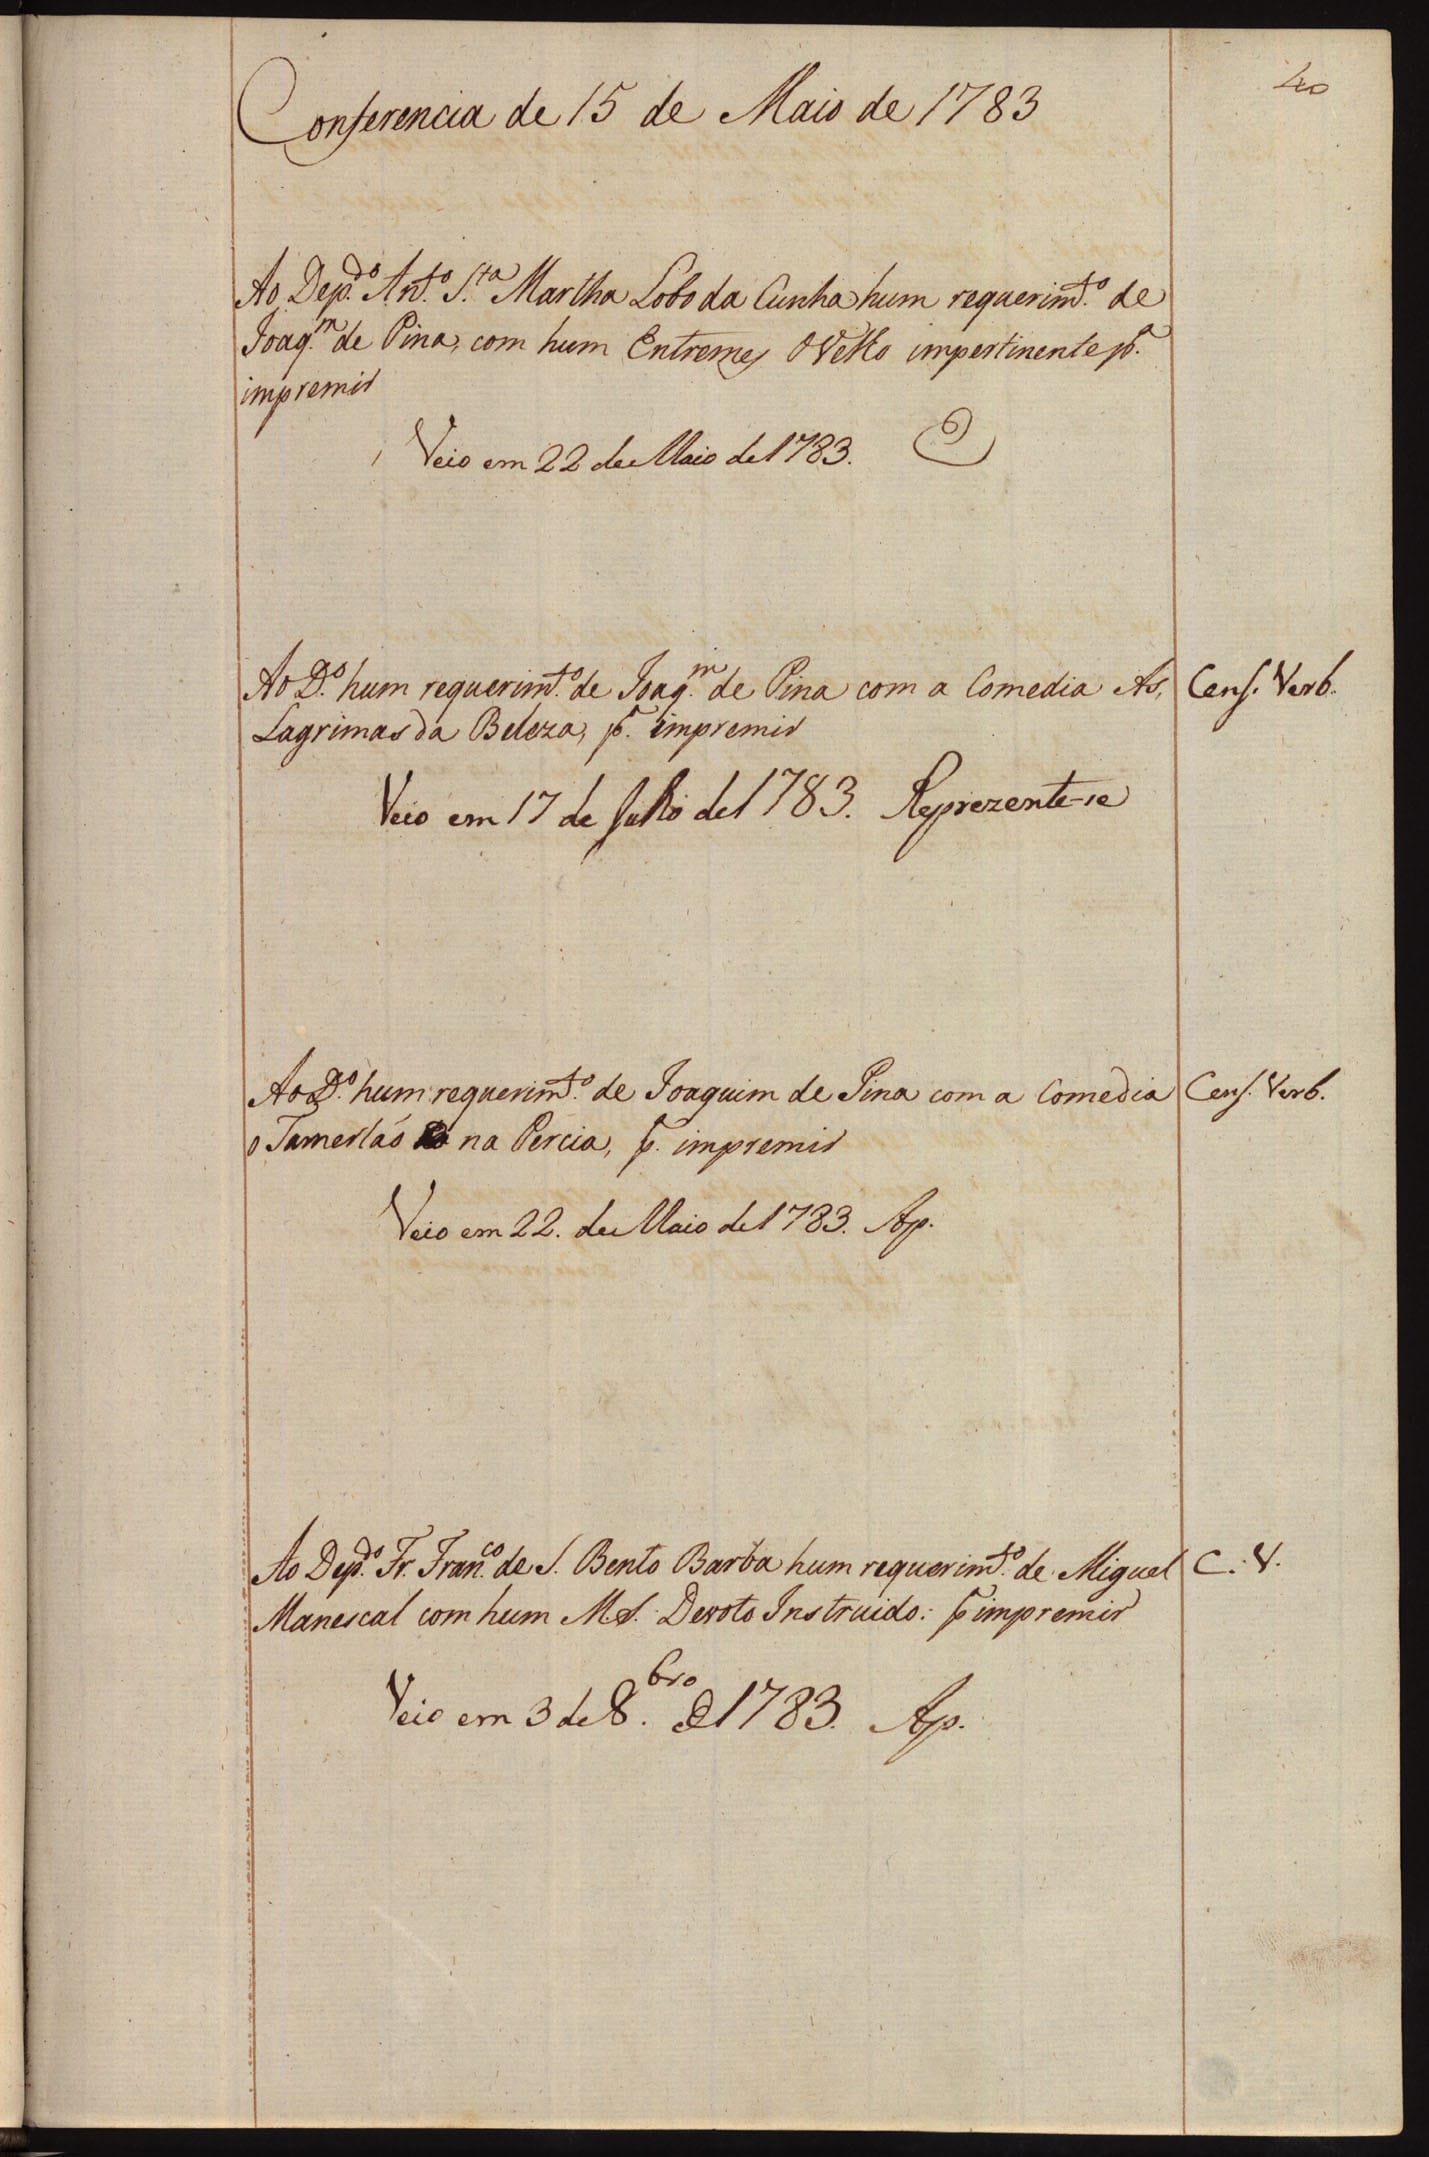 40
Conferencia de 15 de Maio de 1783
Ao Dep.do Ant.o S.ta Martha Lobo da Cunha hum requerim.to de
Joaq.m de Pina, com hum Entremes O Velho impertinente p.a
impremir
Veio em 22 de Maio de 1783.
Ao D.o hum requerim.to de Joaq.m de Pina com a Comedia As
Lagrimas da Beleza, p.a impremir
Cens. Verb.
Veio em 17 de Julho de 1783. Reprezente-se
Ao D.o hum requerim.to de Joaquim de Pina com a Comedia
o Tamerlaó na Percia, p.a impremir
Cens. Verb.
Veio em 22. de Maio de 1783. Ap.
Ao Dep.do Fr. Fran.co de S. Bento Barba hum requerim.to de Miguel
Manescal com hum M.S. Devoto Instruido: p.a impremir
C. V.
Veio em 3 de 8.bro de 1783. Ap.